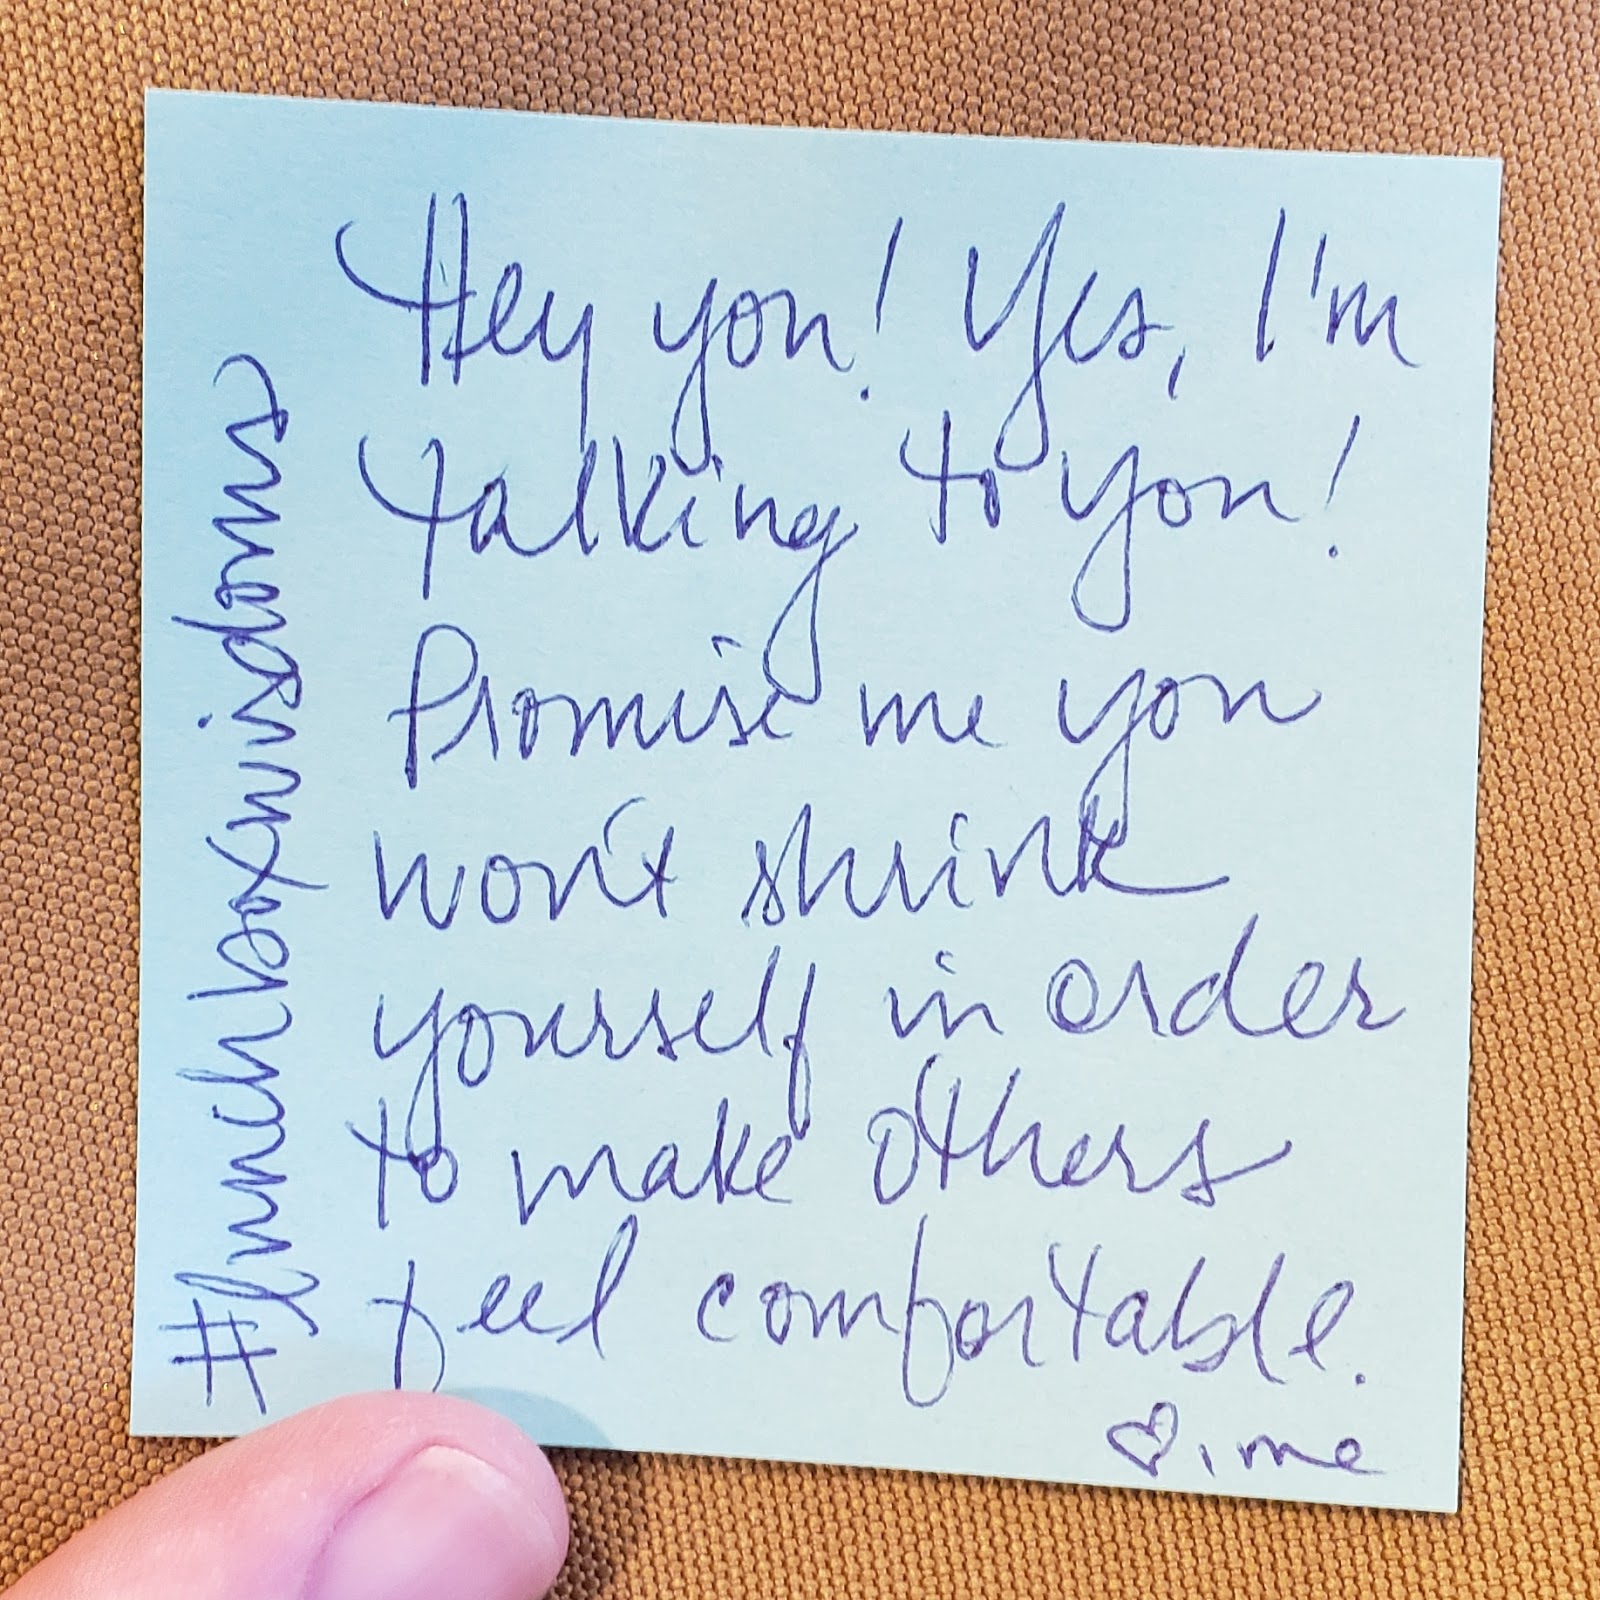 Hey you! Yes, I'm
talking to you!
Promise me you
won't shrink
yourself in order
to make others
feel comfortable.
♡, me
#lunchboxwisdoms